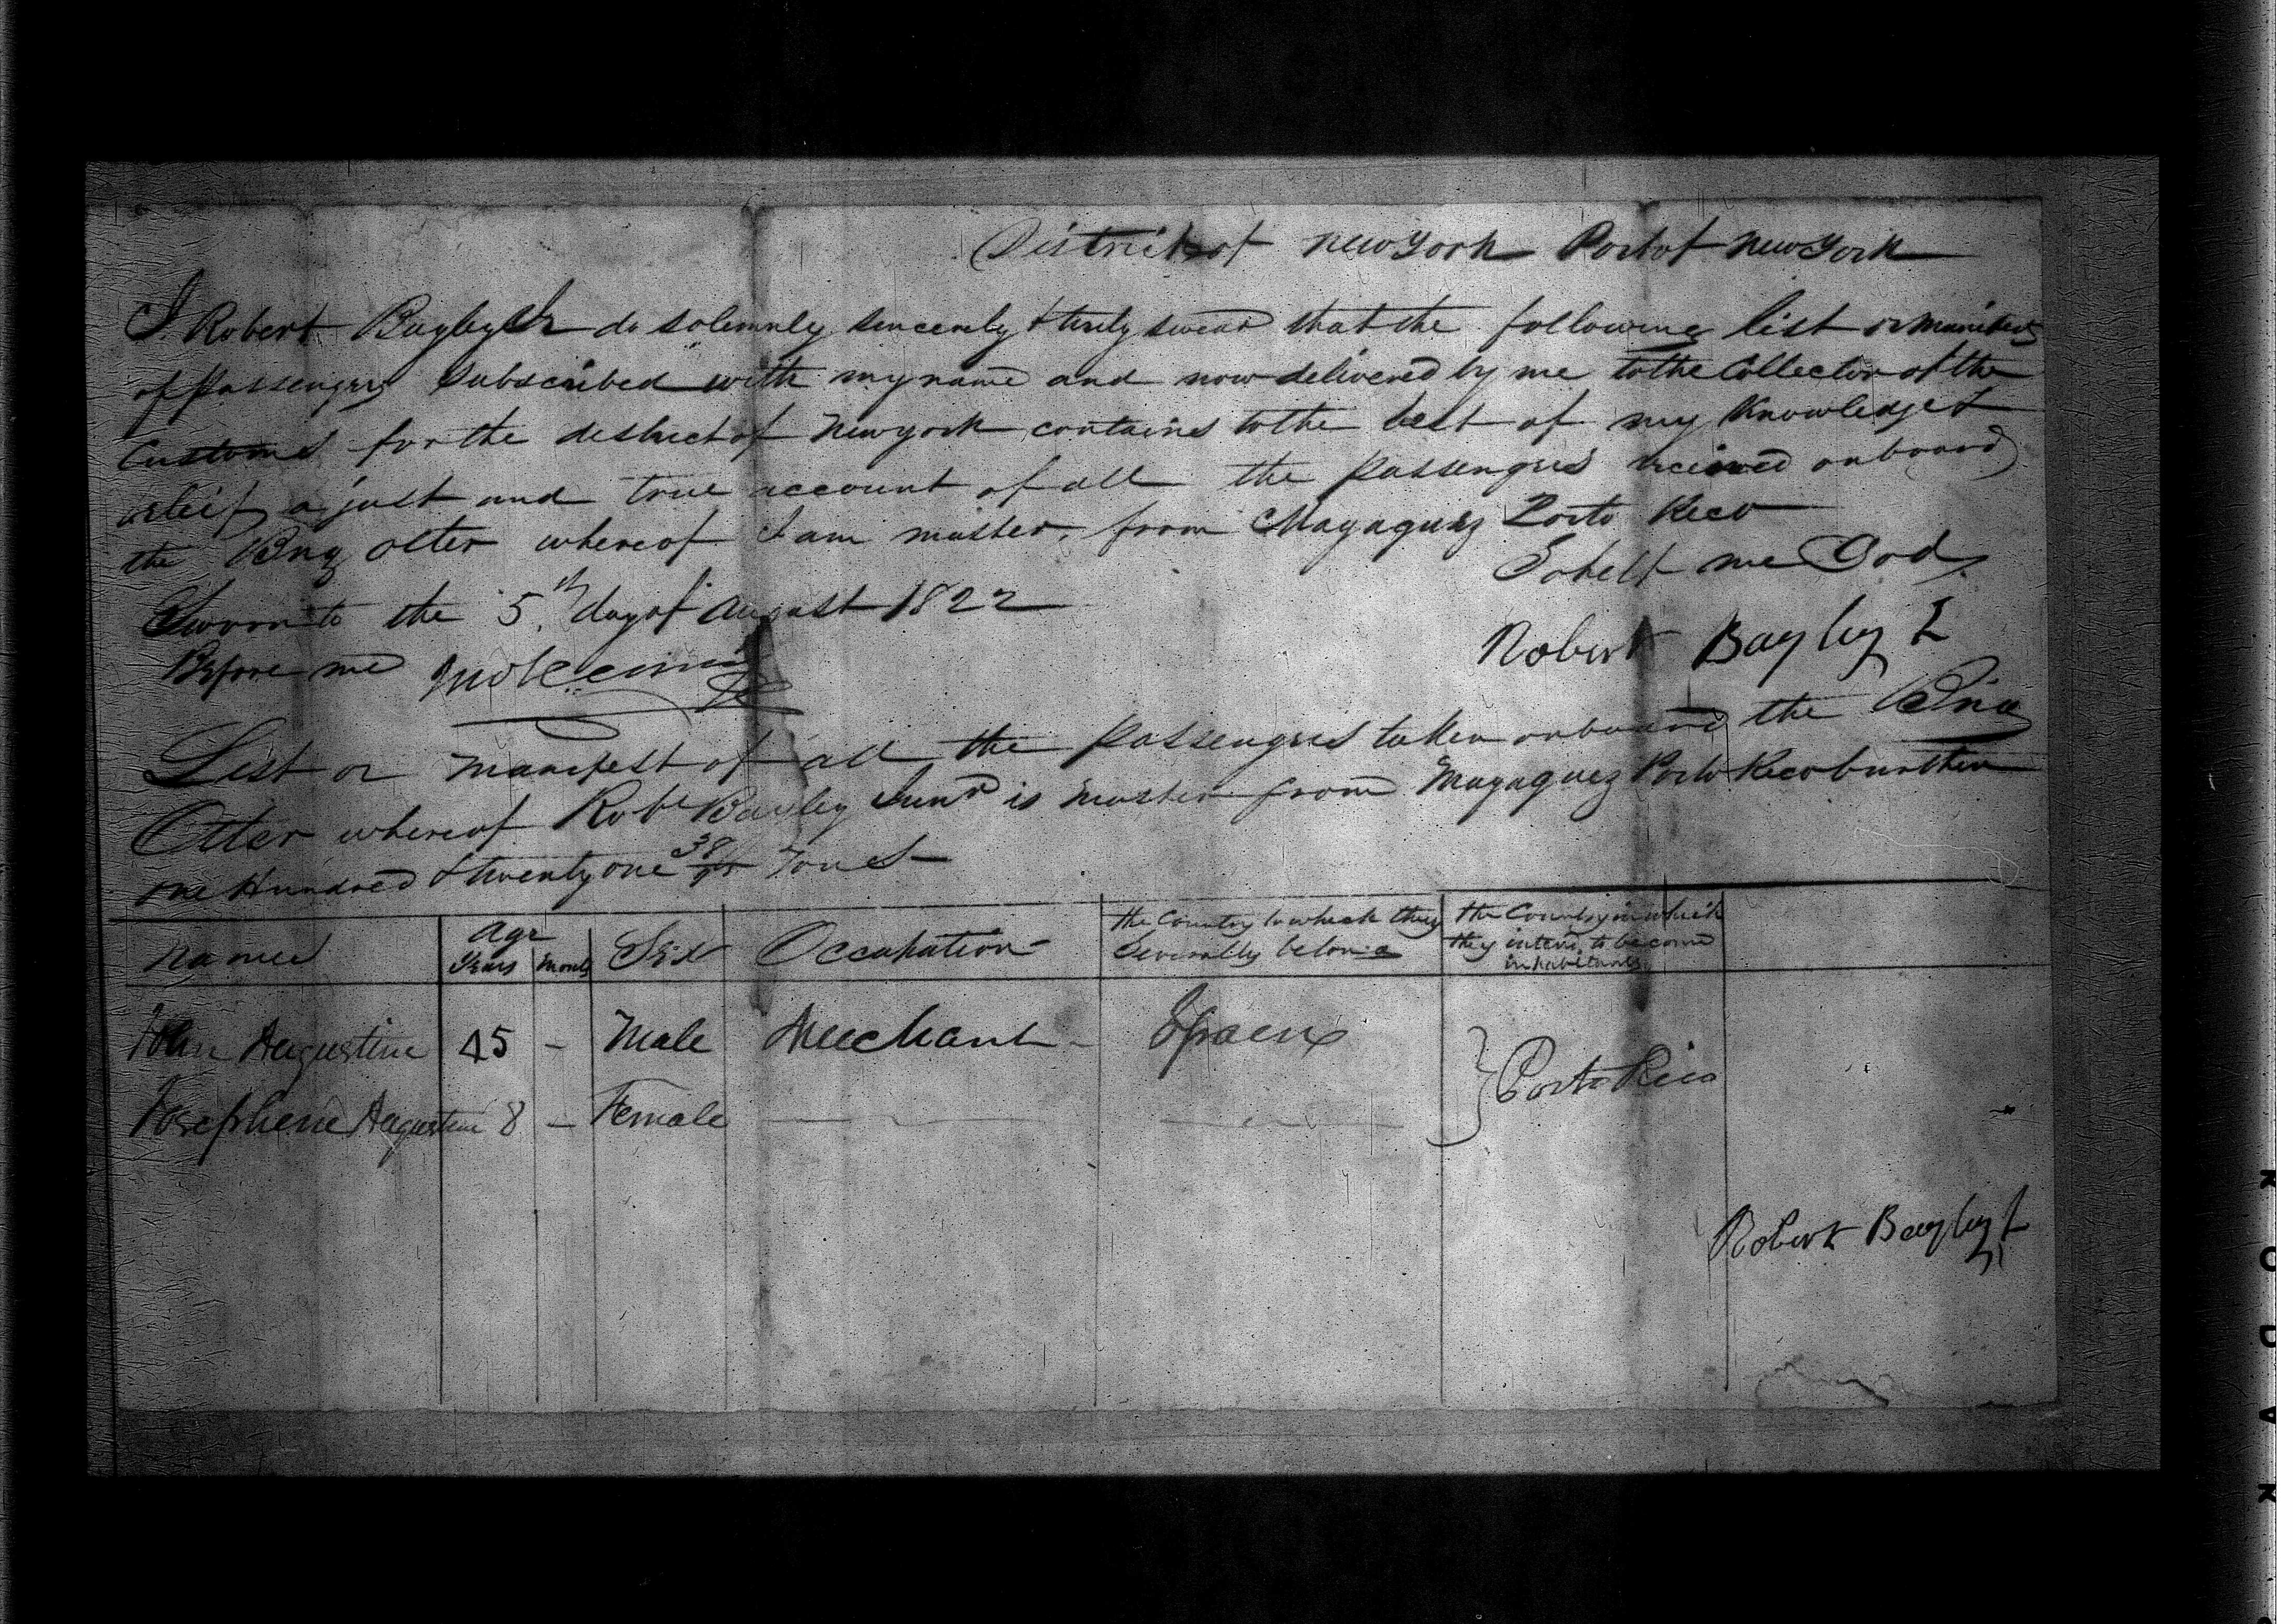 District of New York Port of New York
I Robert Bayley Jr do solemnly sincerely & truly swear that the following list or manifest
of passengers subscribed with my name and now delivered by me to the Collector of the
Customs for the destrict of New york contains to the best of my Knowledge &
beleif a just and true account of all the passengers recieved onboard
the Brig otter whereof I am master, from Mayaguez Porto Reco
So help me God
Sworn to the 5th day of August 1822
Robert Bayley J
Before me
List or manifest of all the passengers taken onboard the Brig
Otter whereof Robt Bayley Junr is master from Mayaguez Porto Reco burthen
one Hundred & twenty one 38/95 Tons
Names
Age
Years
Months
Sex
Occupation
the Country to which they
severally belong
the Country in which
they intend to become
inhabitants
John Augustine 45 - Male Merchant - Spain
Porto Rico
Josephene Augustine 8 - Female
Robert Bayley J
KODAK